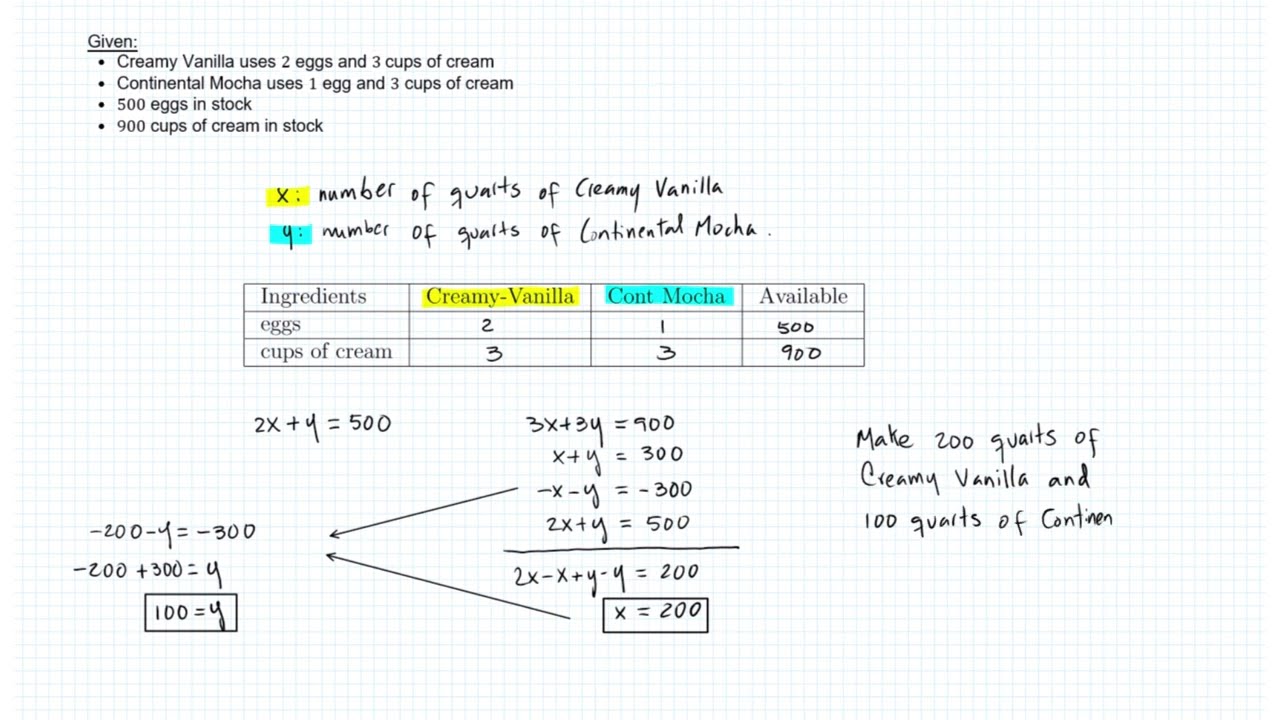 Given:
• Creamy Vanilla uses 2 eggs and 3 cups of cream
• Continental Mocha uses 1 egg and 3 cups of cream
• 500 eggs in stock
• 900 cups of cream in stock
x: number of quarts of Creamy Vanilla
y: number of quarts of Continental Mocha.
Ingredients Creamy-Vanilla Cont Mocha Available
eggs 2 1 500
cups of cream 3 3 900
2x+y = 500
3x+3y = 900
x+y = 300
-x-y = -300
2x+y = 500
2x-x+y-y = 200
x = 200
-200-y = -300
-200+300 = y
100 = y
Make 200 quarts of
Creamy Vanilla and
100 quarts of Continen